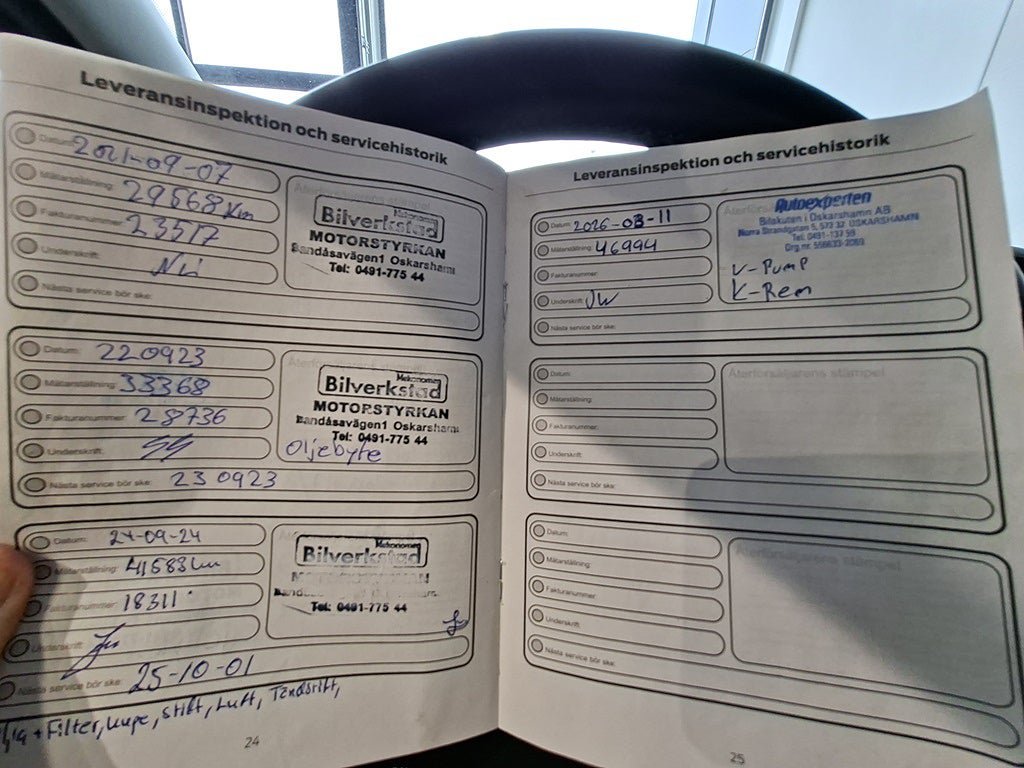 Leveransinspektion och servicehistorik
Datum: 2021-09-07
Mätarställning: 29568 km
Fakturanummer: 23517
Underskrift:
Nästa service bör ske:
Återförsäljarens stämpel
Mekonomen
Bilverkstad
MOTORSTYRKAN
Bandåsavägen1 Oskarshamn
Tel: 0491-775 44
Datum: 220923
Mätarställning: 33368
Fakturanummer: 28736
Underskrift:
Nästa service bör ske: 230923
Mekonomen
Bilverkstad
MOTORSTYRKAN
Bandåsavägen1 Oskarshamn
Tel: 0491-775 44
Oljebyte
Datum: 24-09-24
Mätarställning: 41683 km
Fakturanummer: 18311
Underskrift:
Nästa service bör ske: 25-10-01
Mekonomen
Bilverkstad
Tel: 0491-775 44
+ Filter, kupe, stift, Luft, Tändstift,
24
Leveransinspektion och servicehistorik
Datum: 2026-03-11
Mätarställning: 46994
Fakturanummer:
Underskrift: JW
Nästa service bör ske:
Autoexperten
Bilakuten i Oskarshamn AB
Norra Strandgatan 5, 572 32 OSKARSHAMN
Tel. 0491-137 59
Org.nr. 556633-2069
V-PUMP
K-Rem
Datum:
Mätarställning:
Fakturanummer:
Underskrift:
Nästa service bör ske:
Återförsäljarens stämpel
Datum:
Mätarställning:
Fakturanummer:
Underskrift:
Nästa service bör ske:
Återförsäljarens stämpel
25